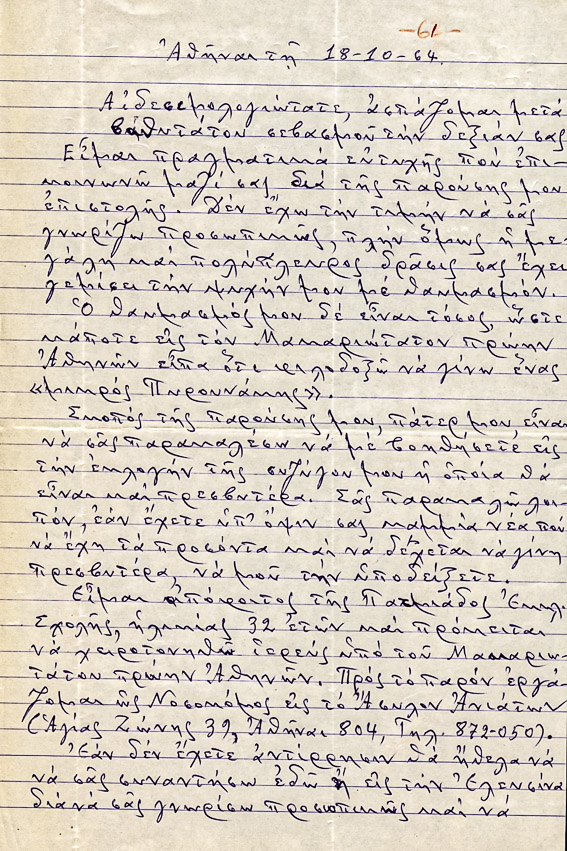 -61-
Ἀθῆναι τῇ 18-10-64.
Αἰδεσιμολογιώτατε, ἀσπάζομαι μετά
βαθυτάτου σεβασμοῦ τήν δεξιάν σας
Εἶμαι πραγματικά εὐτυχής πού ἐπι-
κοινωνῶ μαζί σας διά τῆς παρούσης μου
ἐπιστολῆς. Δέν ἔχω τήν τιμήν νά σᾶς
γνωρίζω προσωπικῶς, πλήν ὅμως ἡ με-
γάλη καί πολύπλευρος δρᾶσις σας ἔχει
γεμίσει τήν ψυχήν μου μέ θαυμασμόν.
Ὁ θαυμασμός μου δέ εἶναι τόσος, ὥστε
κάποτε εἰς τόν Μακαριώτατον πρώην
Ἀθηνῶν εἶπα ὅτι φιλοδοξῶ νά γίνω ἕνας
«μικρός Πυρουνάκης».
Σκοπός τῆς παρούσης μου, πάτερ μου, εἶναι
νά σᾶς παρακαλέσω νά μέ βοηθήσετε εἰς
τήν ἐκλογήν τῆς συζύγου μου ἡ ὁποία θά
εἶναι καί πρεσβυτέρα. Σᾶς παρακαλῶ λοι-
πόν, ἐάν ἔχετε ὑπ' ὄψιν σας καμμία νέα πού
νά ἔχῃ τά προσόντα καί νά δέχεται νά γίνῃ
πρεσβυτέρα, νά μοῦ τήν ὑποδείξετε.
Εἶμαι ἀπόφοιτος τῆς Πατμιάδος Ἐκκλ.
Σχολῆς, ἡλικίας 32 ἐτῶν καί πρόκειται
νά χειροτονηθῶ ἱερεύς ὑπό τοῦ Μακαριω-
τάτου πρώην Ἀθηνῶν. Πρός τό παρόν ἐργά-
ζομαι ὡς Νοσοκόμος εἰς τό Ἄσυλον Ἀνιάτων
(Ἁγίας Ζώνης 39, Ἀθῆναι 804, Τηλ. 872-050).
Ἐάν δέν ἔχετε ἀντίρρησιν θά ἤθελα νά
νά σᾶς συναντήσω ἐδῶ ἤ εἰς τήν Ἐλευσίνα
διά νά σᾶς γνωρίσω προσωπικῶς καί νά